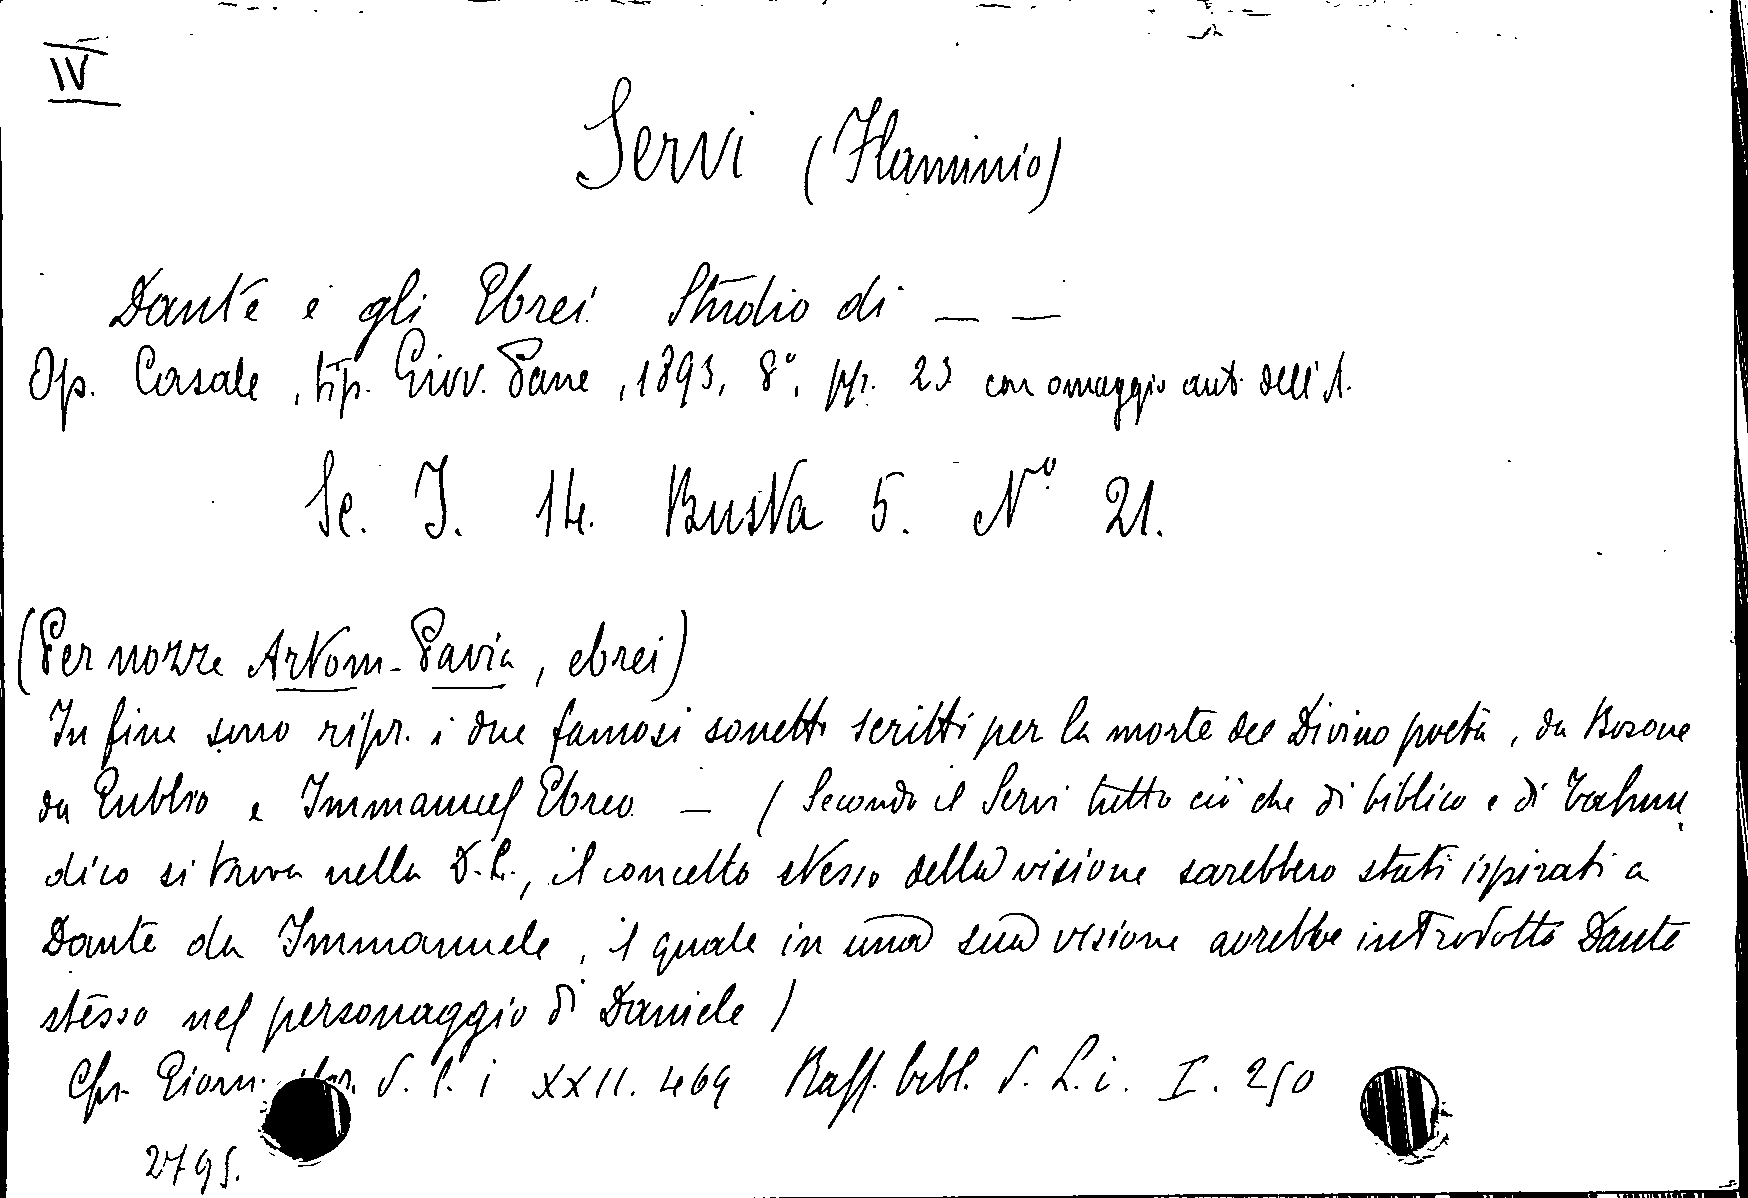 IV
Servi (Flaminio)
Dante e gli Ebrei. Studio di _ _
Op. Casale, tip. Giov. Pane, 1893, 8°, pp. 23 con omaggio aut. dell'A.
Se. I. 14. Busta 5. N° 21.
(Per nozze Artom-Pavia, ebrei)
In fine sono ripr. i due famosi sonetti scritti per la morte del Divino poeta, da Bosone
da Gubbio e Immanuel Ebreo. - (Secondo il Servi tutto ciò che di biblico e di Talmu
dico si trova nella D.C., il concetto stesso della visione sarebbero stati ispirati a
Dante da Immanuele, il quale in una sua visione avrebbe introdotto Dante
stesso nel personaggio di Daniele)
Cfr. Giorn. stor. d. l. i XXII. 469 Rass. bibl. d. L. i. I. 250
2795.